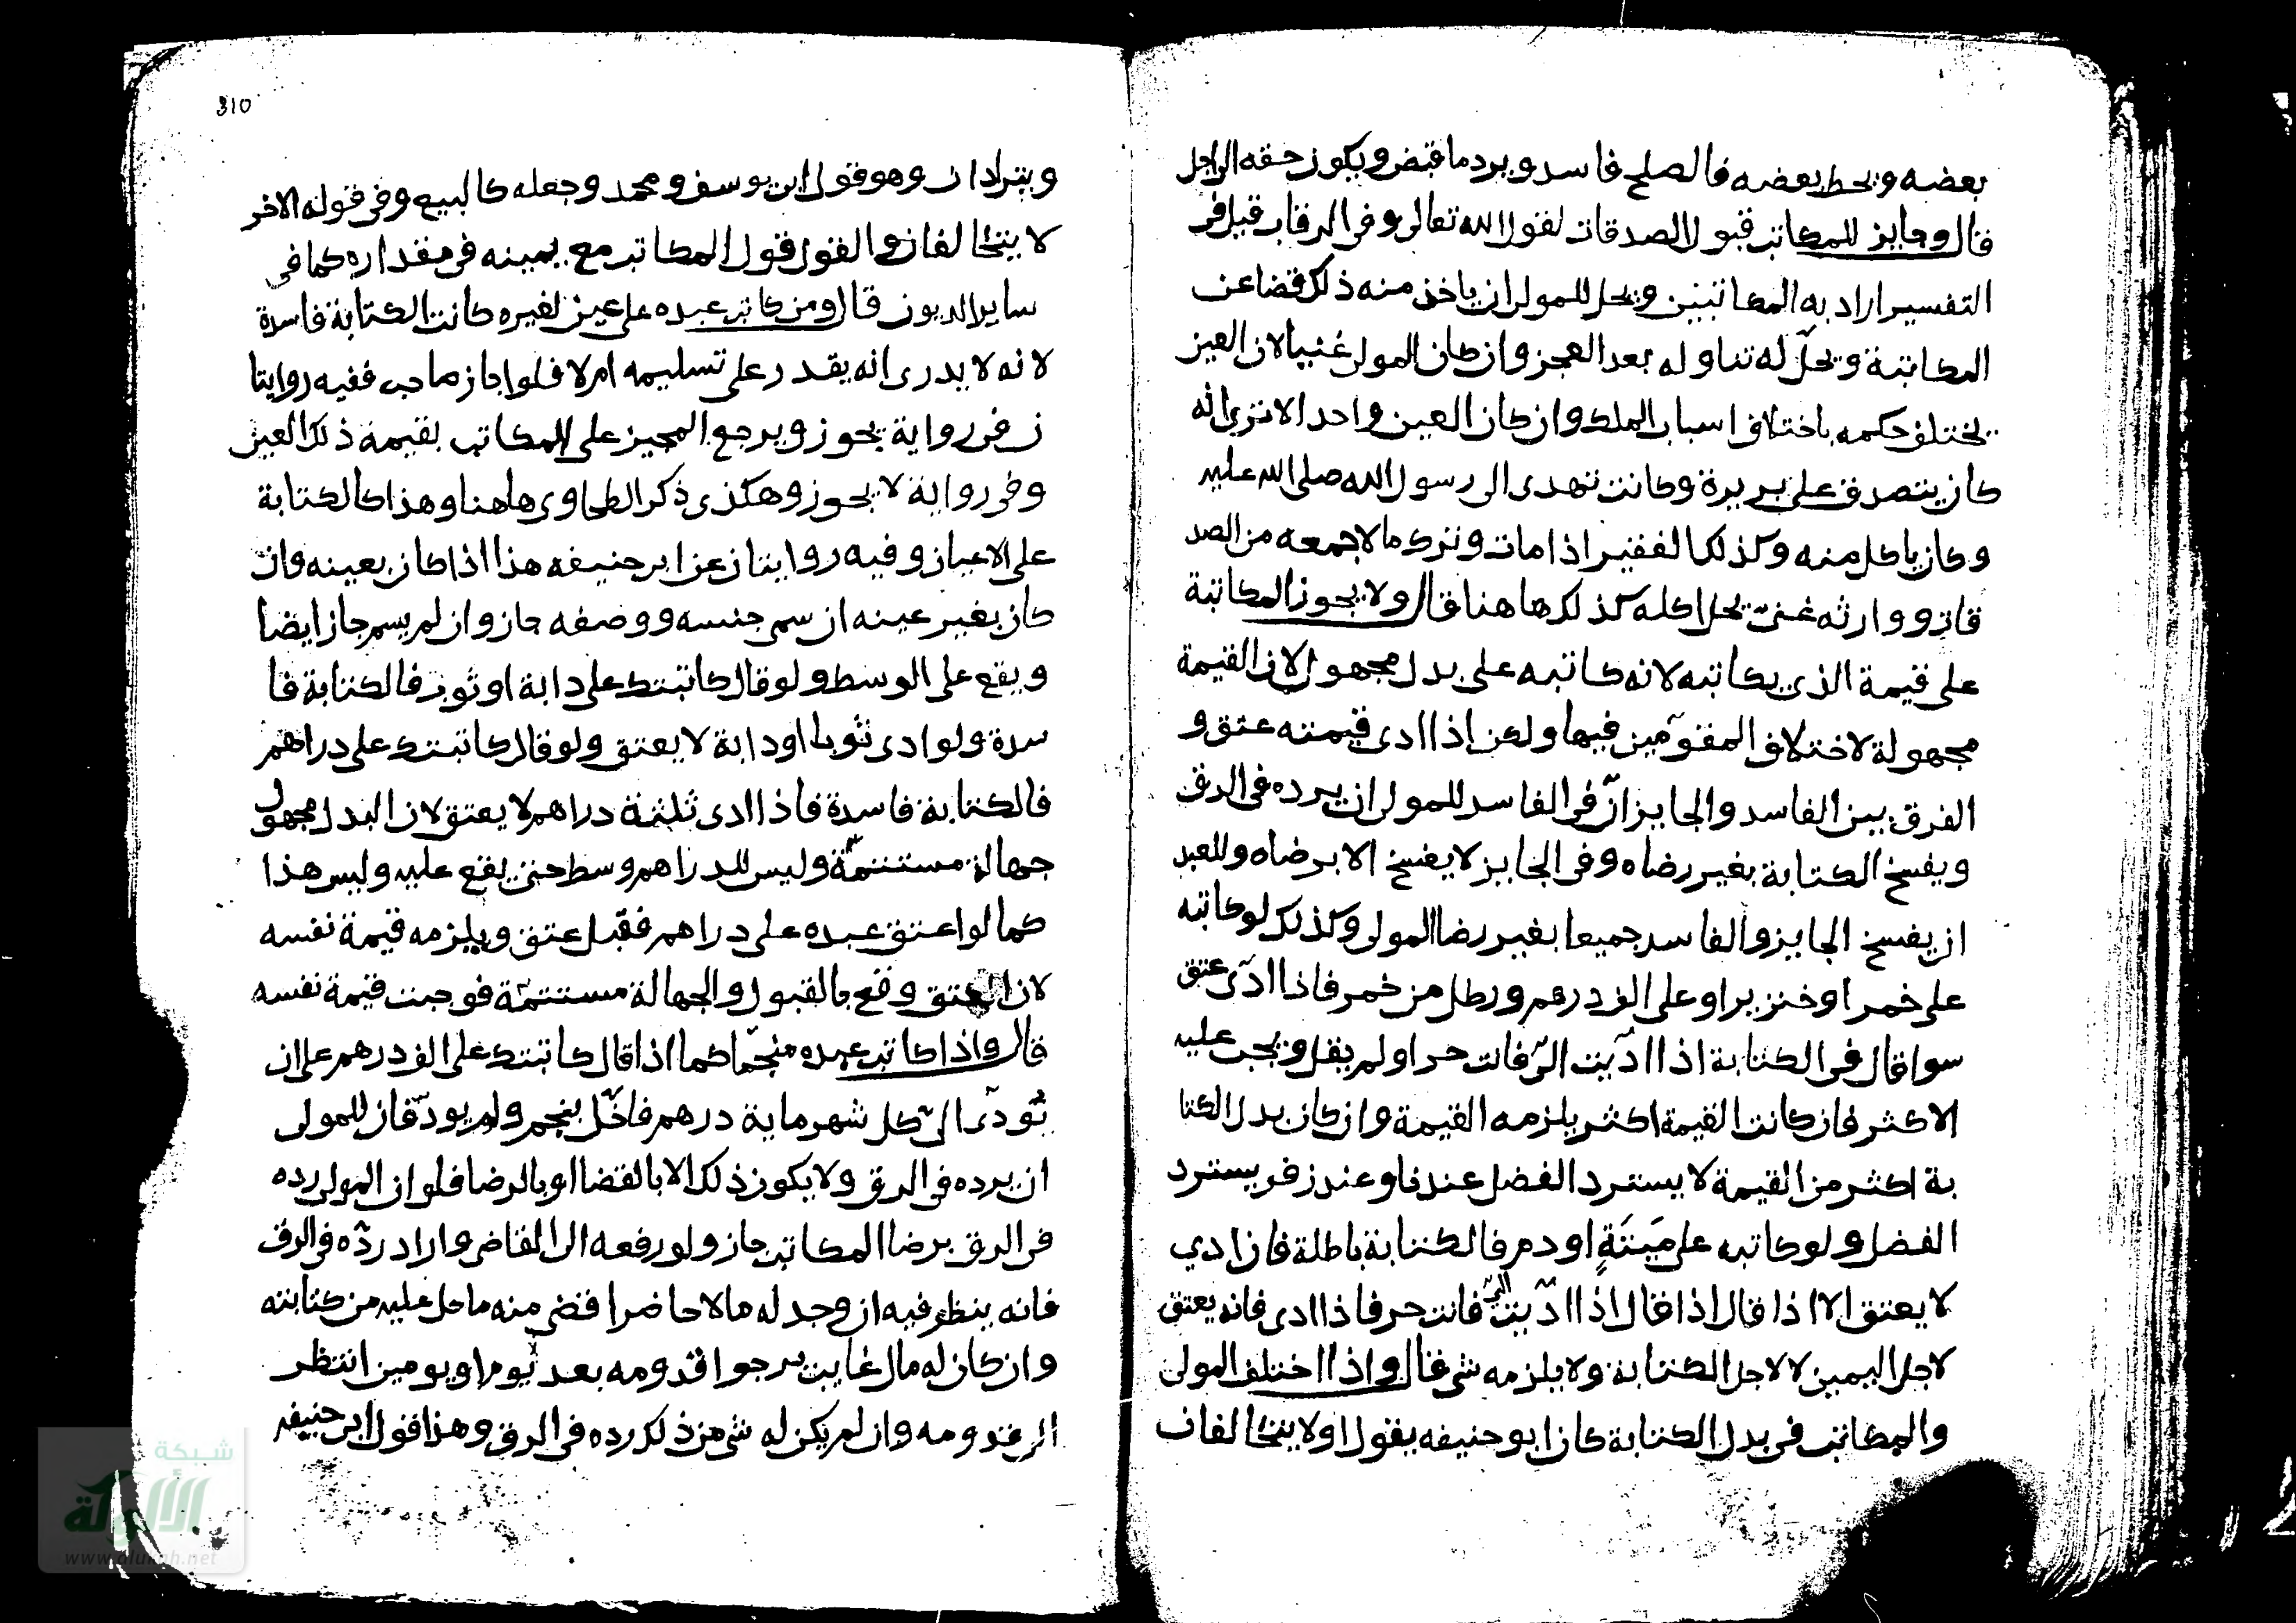 بعضه ويحط بعضه فالصلح فاسد ويرد ما قبض ويكون حقه الى اجل
قال وجايز للمكاتب قبول الصدقات لقول الله تعالى وفى الرقاب قيل فى
التفسير اراد به المكاتبين ويحل للمولى ان ياخذ منه ذلك قضا عن
المكاتبة ويحلّ له تناوله بعد العجز وان كان المولى غنيا لان العين
يختلف حكمه باختلاف اسباب الملك وان كان العين واحد الا ترى انه
كان يتصدق على بريرة وكانت تهدى الى رسول الله صلى الله عليه
وكان ياكل منه وكذلك الفقير اذا مات وترك مالا جمعه من الصد
قات ووارثه غنى يحل اكله كذلك هاهنا قال ولا يجوز المكاتبة
على قيمة الذى يكاتبه لانه كاتبه على بدل مجهول لان القيمة
مجهولة لاختلاف المقوّمين فيها ولكن اذا ادى قيمته عتق و
الفرق بين الفاسد والجايز انّ فى الفاسد للمولى ان يرده فى الرق
ويفسخ الكتابة بغير رضاه وفى الجايز لا يفسخ الا برضاه وللعبد
ان يفسخ الجايز والفاسد جميعا بغير رضا المولى وكذلك لو كاتبه
على خمر او خنزير او على الف درهم ورطل من خمر فاذا ادّى عتق
سوا قال فى الكتابة اذا ادّيت الىّ فانت حر او لم يقل ويجب عليه
الاكثر فان كانت القيمة اكثر يلزمه القيمة وان كان بدل الكتا
بة اكثر من القيمة لا يسترد الفضل عندنا وعند زفر يسترد
الفضل ولو كاتبه على مَيتَةٍ او دم فالكتابة باطلة فان ادي
لا يعتق الا اذا قال اذا قال اذا ادّيت الىّ فانت حر فاذا ادى فانه يعتق
لاجل اليمين لا لاجل الكتابة ولا يلزمه شى قال واذا اختلف المولى
والمكاتب فى بدل الكتابة كان ابو حنيفه يقول اولا يتحالفان
310
ويترادان وهو قول ابى يوسف ومحمد وجعله كالبيع وفى قوله الاخر
لا يتحالفان والقول قول المكاتب مع يمينه فى مقداره كما فى
ساير الديون قال ومن كاتب عبده على عين لغيره كانت الكتابة فاسدة
لانه لا يدرى انه يقدر على تسليمه ام لا فلو اجاز صاحب ففيه روايتا
ن فى رواية يجوز ويرجع المجيز على المكاتب بقيمة ذلك العين
وفى رواية لا يجوز وهكذى ذكر الطحاوى هاهنا وهذا كالكتابة
على الاعيان وفيه روايتان عن ابى حنيفه هذا اذا كان بعينه وان
كان بغير عينه ان سمى جنسه ووصفه جاز وان لم يسم جاز ايضا
ويقع على الوسط ولو قال كاتبتك على دابة او ثوب فالكتابة فا
سدة ولو ادى ثوبا او دابة لا يعتق ولو قال كاتبتك على دراهم
فالكتابة فاسدة فاذا ادى ثلثة دراهم لا يعتق لان البدل مجهول
جهالة مستتمّة وليس للدراهم وسط حتى يقع عليه وليس هذا
كما لو اعتق عبده على دراهم فقبل عتق ويلزمه قيمة نفسه
لان العتق وقع بالقبول والجهالة مستتمّة فوجبت قيمة نفسه
قال واذا كاتب عبده منجّما كما اذا قال كاتبتك على الف درهم على ان
تُودّى الىّ كل شهر ماية درهم فاخلّ بنجم ولم يودّ فان للمولى
ان يرده فى الرق ولا يكون ذلك الا بالقضا او بالرضا فلو ان المولى رده
فى الرق برضا المكاتب جاز ولو رفعه الى القاضى واراد ردّه فى الرق
فانه ينظر فيه ان وجد له مالا حاضرا اقتضى منه ما حل عليه من كتابته
وان كان له مال غايب يرجوا قدومه بعد يوم او يومين انتظر
الى قدومه وان لم يكن له شى من ذلك رده فى الرق وهذا قول ابى حنيفه
شبكة
الألوكة
www.alukah.net